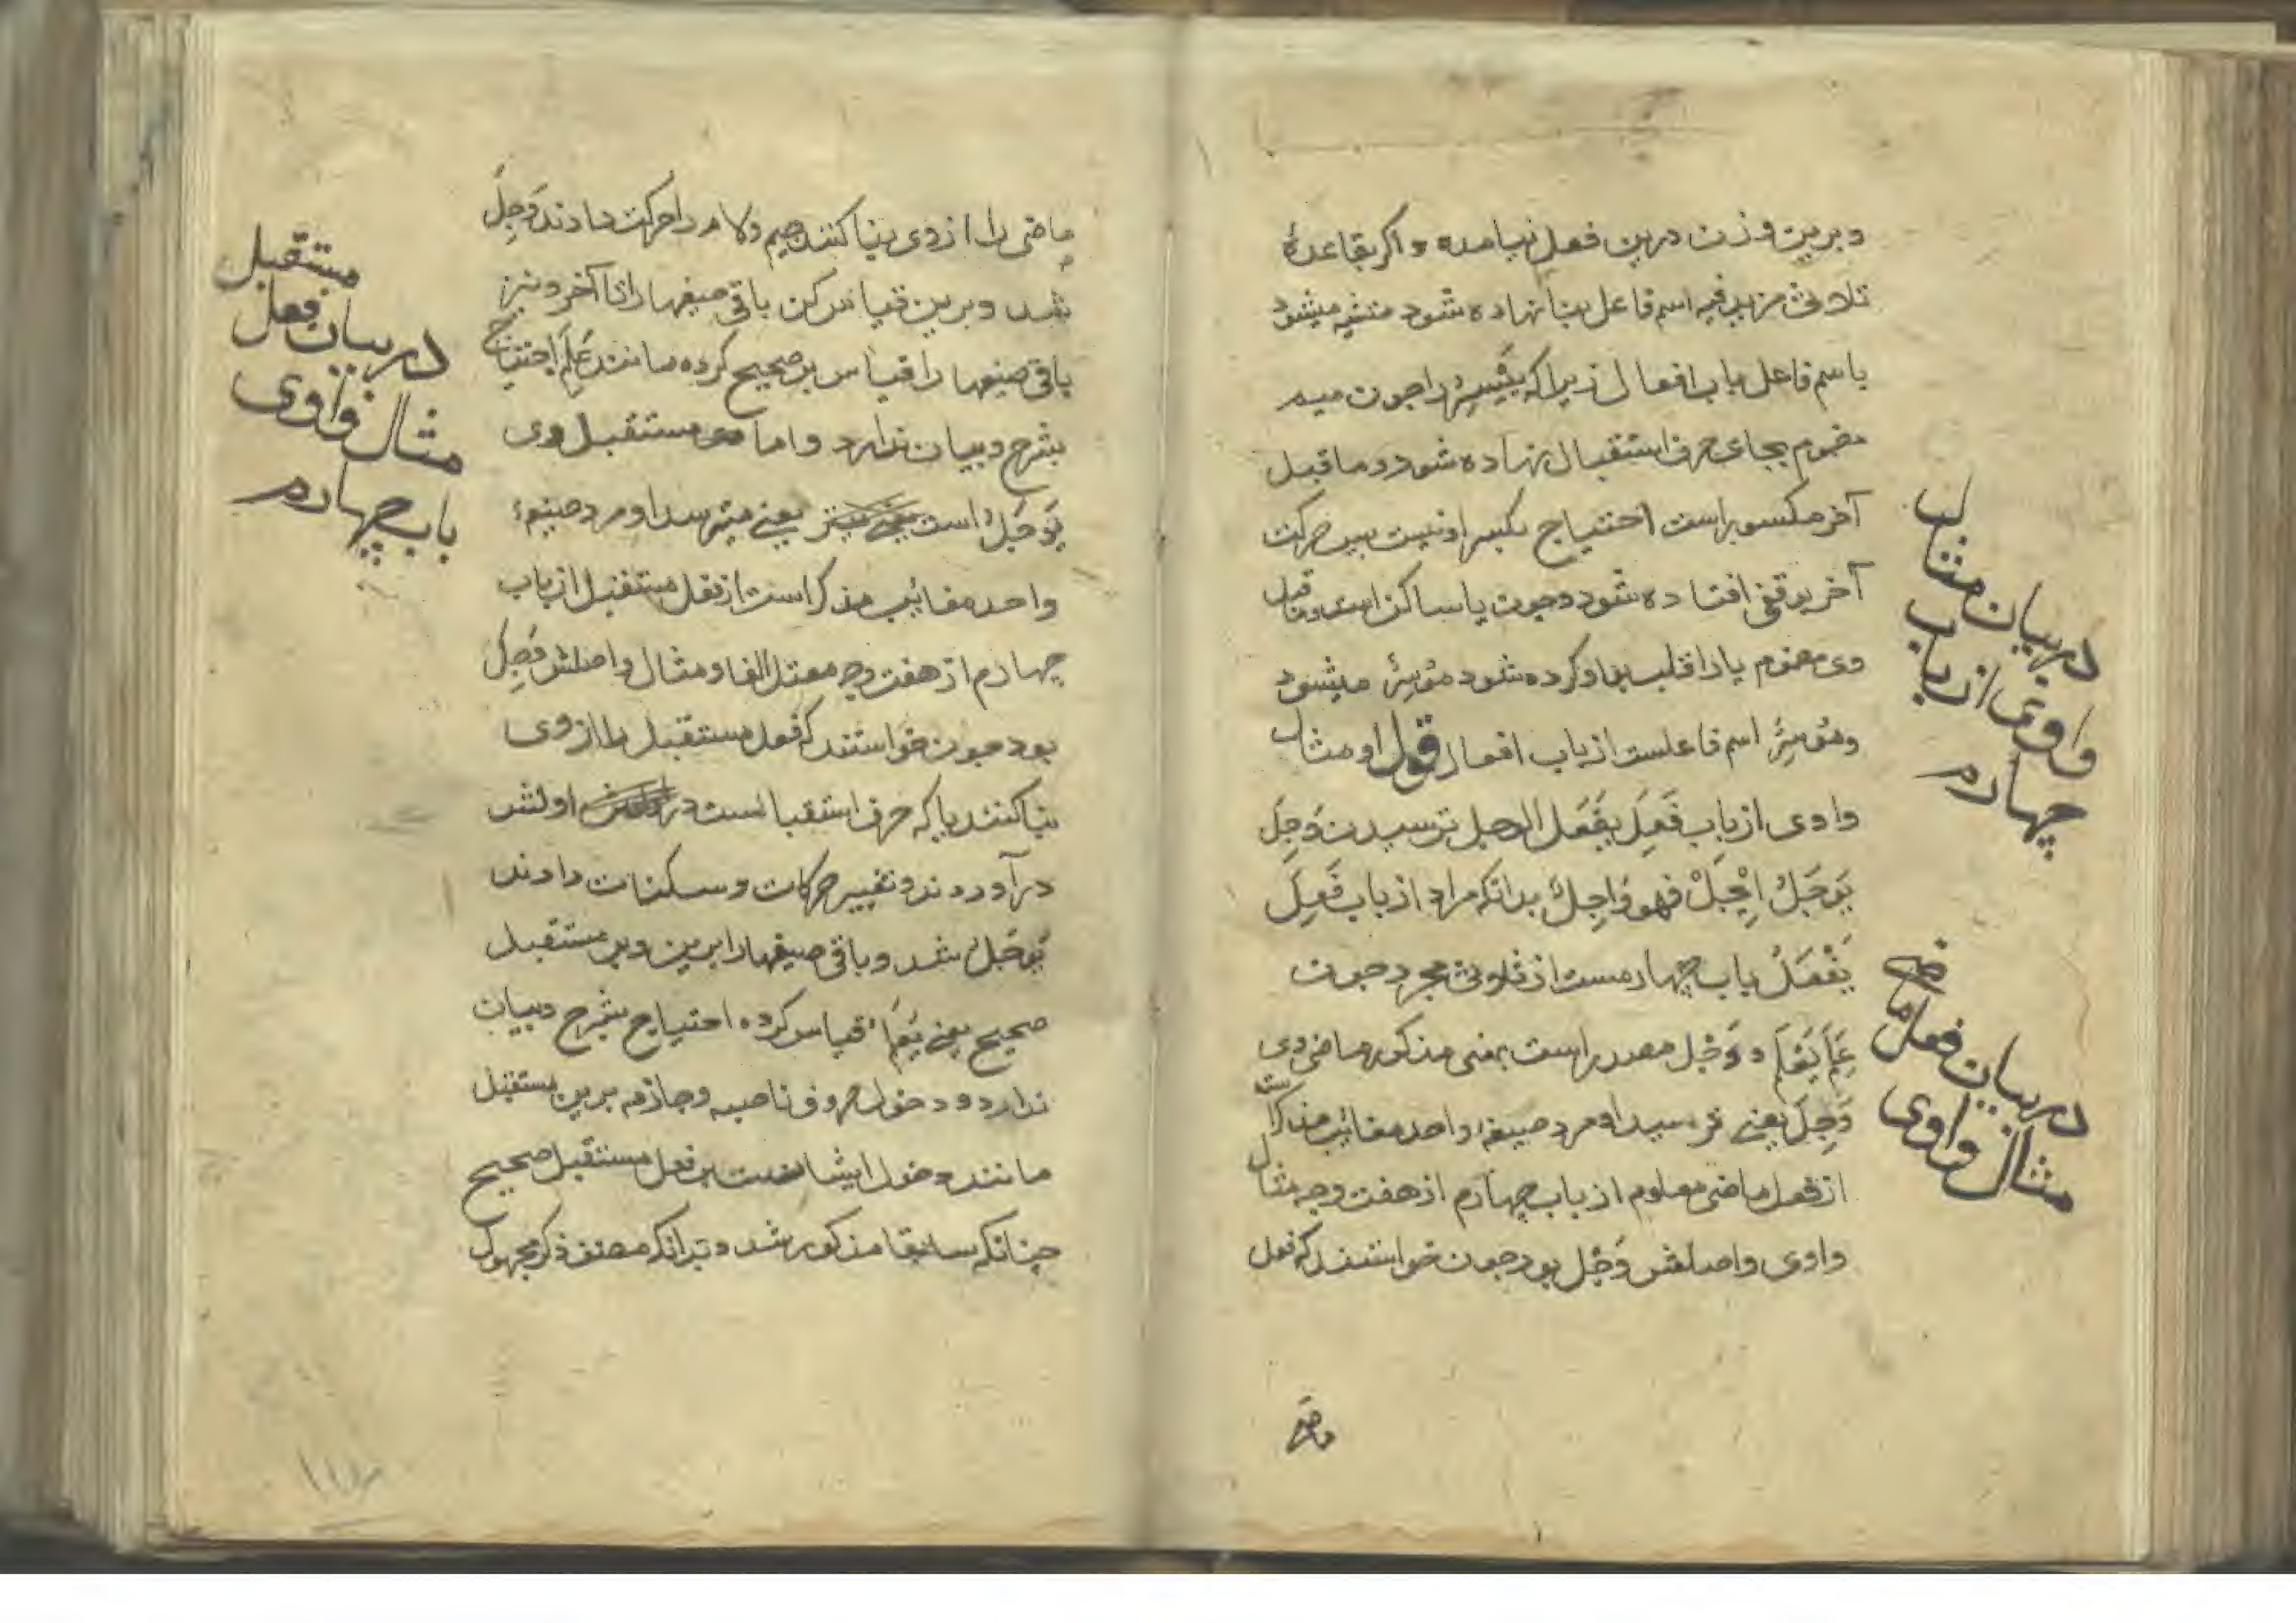 وبرین وزن درین فعل نیامده و اکر بقاعدهٔ
ثلاثی مزید فیه اسم فاعل بنا نهاده شود مشبه میشود
باسم فاعل باب افعال زیرا که ییسر را جون میم
مضموم بجای حرف استقبال نهاده شود و ماقبل
آخر مکسور است احتیاج بکسر او نیست پس حرکت
آخر بر قی افتاده شود و جون یا ساکن است و ماقبل
وی مضموم یا را قلب بواو کرده شود مُوْسِرٌ میشود
ومُوْسِرٌ اسم فاعلست از باب افعال قوله او مثال
واوی از باب فَعِلَ یَفْعَلُ الوجل ترسیدن وَجِلَ
یَوْجَلُ اِیْجَلْ فهو وَاجِلٌ بدانکه مراد از باب فَعِلَ
یَفْعَلُ باب چهارمست از ثلاثی مجرد جون
عَلِمَ یَعْلَمُ و وَجْل مصدر است بمعنی مذکور ماضی وی
وَجِلَ یعنی ترسید او مرد صیغهٔ واحد مغائب مذکر است
از فعل ماضی معلوم از باب چهارم از هفت وجه مثال
واوی واصلش وَجْل بود جون خواستند که فعل
در بیان مثال
واوی از باب
چهارم
در بیان فعل ماضی
مثال واوی
ماضی را از وی بنا کنند جیم و لام را حرکت دادند وَجِلَ
شد وبرین قیاس کن باقی صیغها را تا آخر و نیز
باقی صیغها را قیاس بر صحیح کرده مانند عَلِمَ احتیاج
بشرح و بیان ندارد و اما مستقبل وی
یَوْجَلُ است یعنی میترسد او مرد صیغهٔ
واحد مغائب مذکر است از فعل مستقبل از باب
چهارم از هفت وجه معتل الفا و مثال واصلش وَجِلَ
بود جون خواستند که فعل مستقبل را از وی
بنا کنند یا که حرف استقبالست در اولش
درآوردند و تغییر حرکات و سکنات دادند
یَوْجَلُ شد و باقی صیغها را برین و بر مستقبل
صحیح یعنی یَعْلَمُ قیاس کرده احتیاج بشرح و بیان
ندارد و دخول حروف ناصبه و جازمه برین مستقبل
مانند دخول ایشانست بر فعل مستقبل صحیح
چنانکه سابقا مذکور شد و بدانکه مصنف ذکر مجهول
مستقبل
در بیان فعل
مثال واوی
باب چهارم